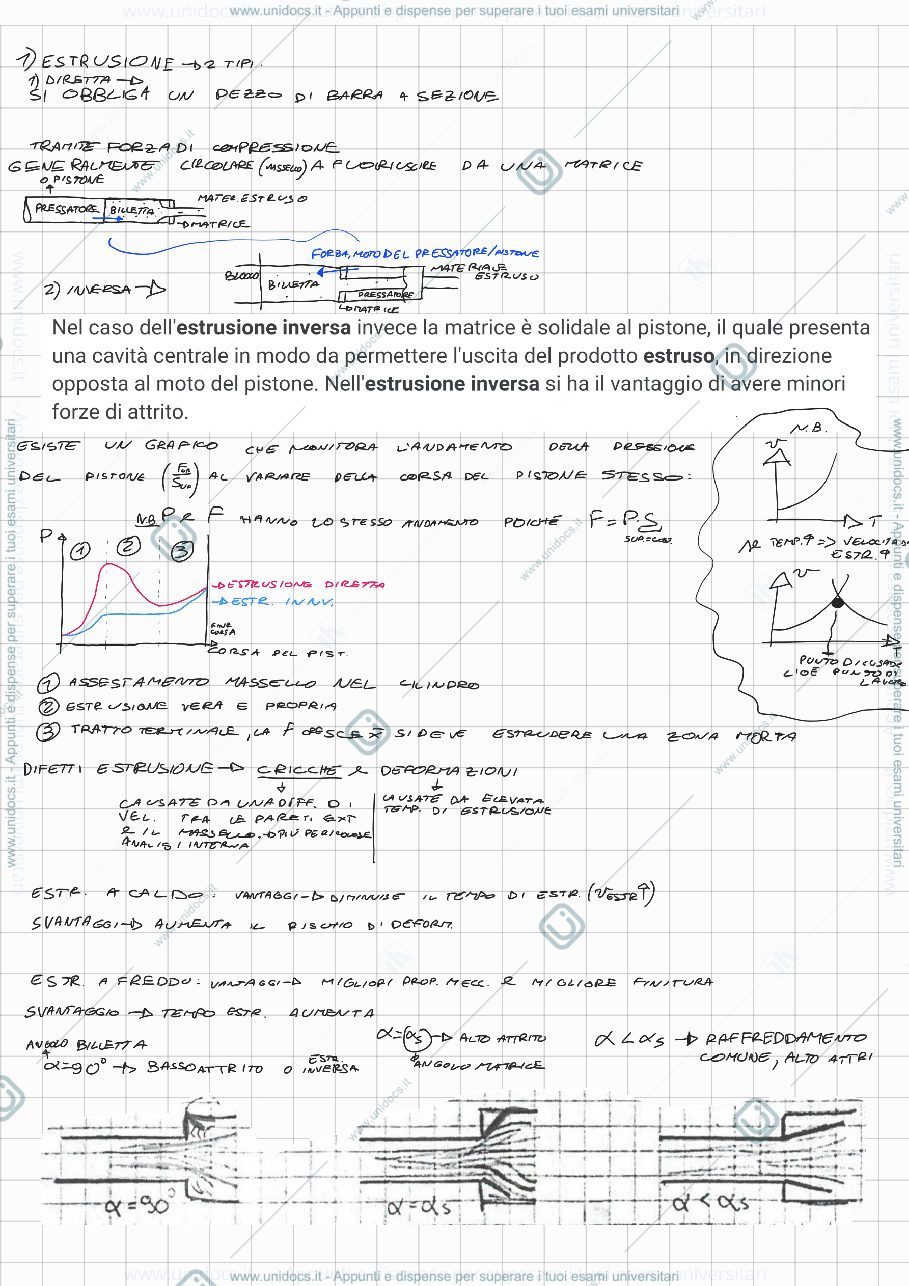 www.unidocs.it - Appunti e dispense per superare i tuoi esami universitari
1) ESTRUSIONE → 2 TIPI.
1) DIRETTA →
SI OBBLIGA UN PEZZO DI BARRA A SEZIONE
TRAMITE FORZA DI COMPRESSIONE
GENERALMENTE CIRCOLARE (MASSELLO) A FUORIUSCIRE DA UNA MATRICE
O PISTONE
PRESSATORE BILLETTA MATER. ESTRUSO
→ MATRICE
FORZA, MOTO DEL PRESSATORE/PISTONE
2) INVERSA →
BLOCCO BILLETTA MATERIALE ESTRUSO
PRESSATORE
→ MATRICE
Nel caso dell'estrusione inversa invece la matrice è solidale al pistone, il quale presenta
una cavità centrale in modo da permettere l'uscita del prodotto estruso, in direzione
opposta al moto del pistone. Nell'estrusione inversa si ha il vantaggio di avere minori
forze di attrito.
ESISTE UN GRAFICO CHE MONITORA L'ANDAMENTO DELLA PRESSIONE
DEL PISTONE AL VARIARE DELLA CORSA DEL PISTONE STESSO:
N.B. P e F HANNO LO STESSO ANDAMENTO POICHÉ F = P·S
P
1 2 3
→ ESTRUSIONE DIRETTA
→ ESTR. INNV.
FINE CORSA
CORSA DEL PIST.
N.B.
v
T
AL TEMP.↑ => VELOCITÀ DI
ESTR. ↑
v
PUNTO DI
CIOÈ PUNTO DI
LAVORO
1 ASSESTAMENTO MASSELLO NEL CILINDRO
2 ESTRUSIONE VERA E PROPRIA
3 TRATTO TERMINALE, LA F CRESCE SI DEVE ESTRUDERE UNA ZONA MORTA
DIFETTI ESTRUSIONE → CRICCHE & DEFORMAZIONI
CAUSATE DA UNA DIFF. DI
VEL. TRA LE PARETI EXT
E IL MASSELLO. → PIÙ PERICOLOSE
ANALISI INTERNA
CAUSATE DA ELEVATA
TEMP. DI ESTRUSIONE
ESTR. A CALDO: VANTAGGI → DIMINUISE IL TEMPO DI ESTR. (VESTR↑)
SVANTAGGI → AUMENTA IL RISCHIO DI DEFORM.
ESTR. A FREDDO: VANTAGGI → MIGLIORI PROP. MECC. & MIGLIORE FINITURA
SVANTAGGIO → TEMPO ESTR. AUMENTA
ANGOLO BILLETTA
α=90° → BASSO ATTRITO O ESTR. INVERSA
α=αs → ALTO ATTRITO
ANGOLO MATRICE
α < αs → RAFFREDDAMENTO
COMUNE, ALTO ATTRI
α=90°
α=αs
α<αs
www.unidocs.it - Appunti e dispense per superare i tuoi esami universitari